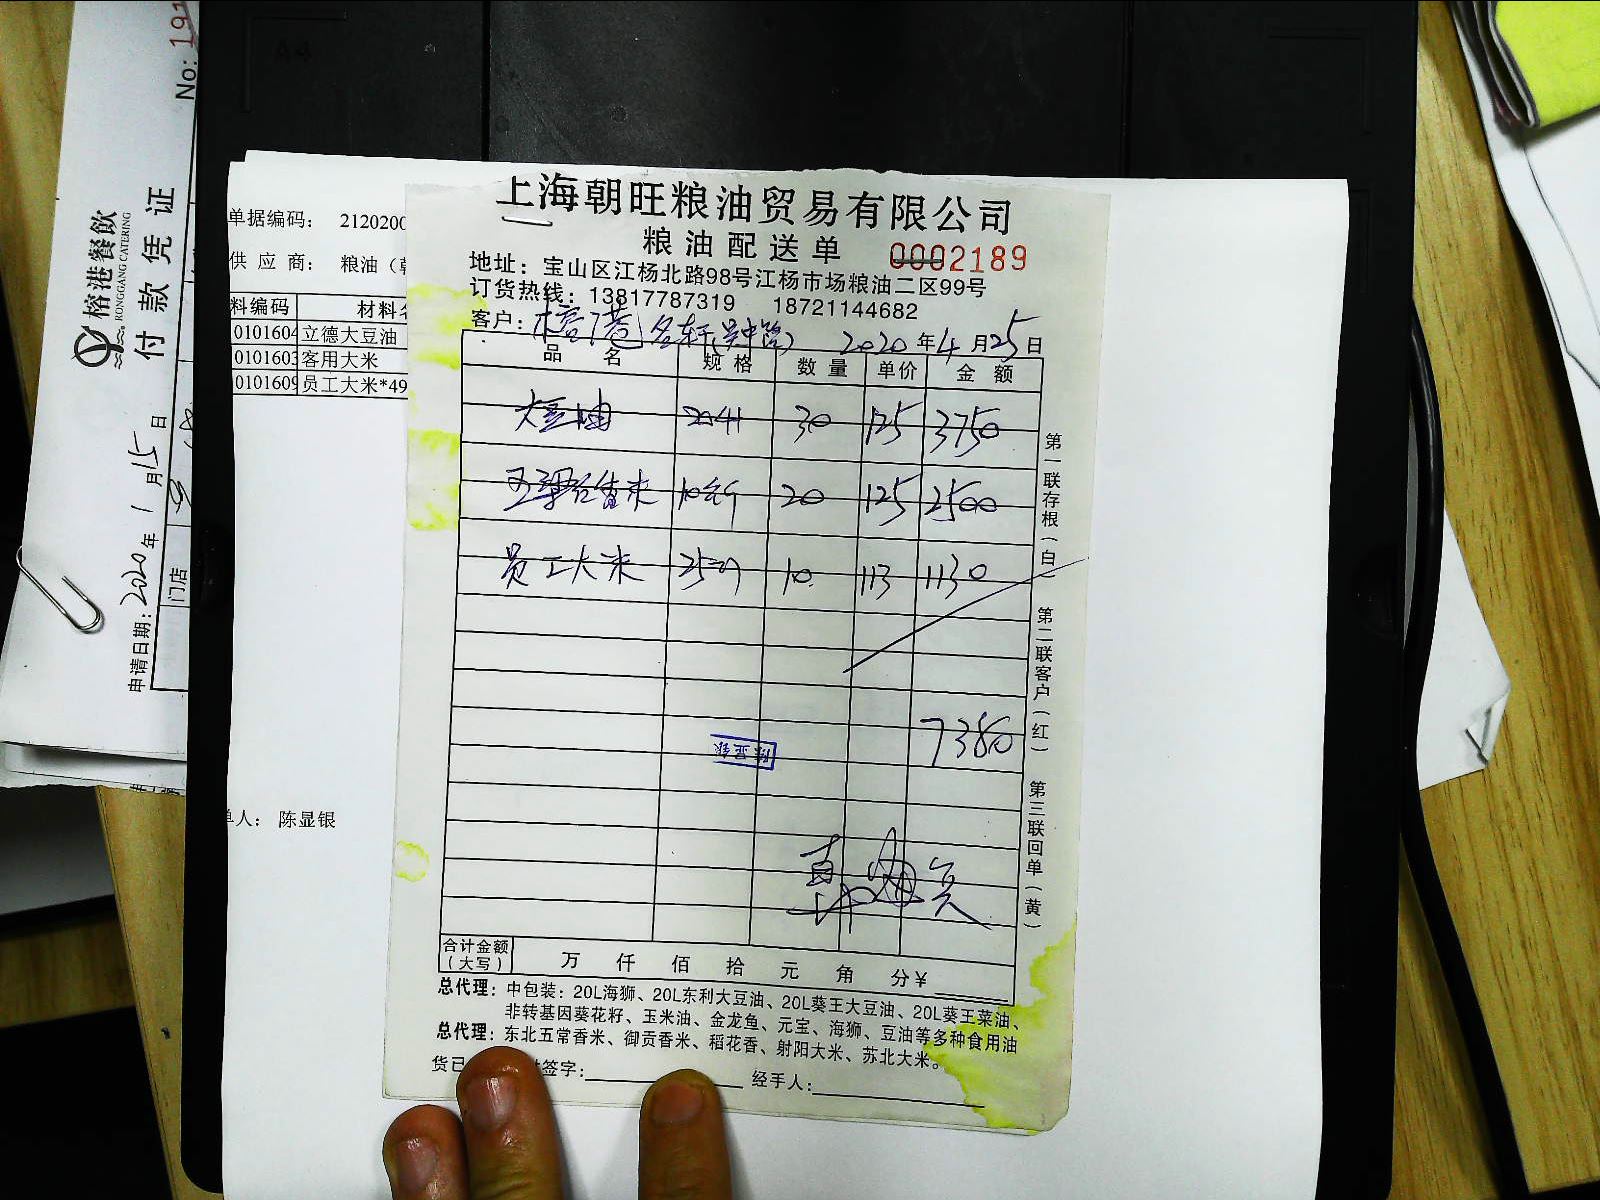 No: 191
榕港餐飲
RONGGANG CATERING
付款凭证
申请日期: 2020 年 1 月 15 日
门店
单据编码： 2120200
供 应 商： 粮油（
料编码 材料名
0101604 立德大豆油
0101603 客用大米
0101609 员工大米*49
单人： 陈显银
上海朝旺粮油贸易有限公司
粮油配送单 0002189
地址：宝山区江杨北路98号江杨市场粮油二区99号
订货热线：13817787319 18721144682
客户：榕港名轩(吴中路) 2020 年 4 月 25 日
品 名 规 格 数 量 单价 金 额
大豆油 20升 30 125 3750
香米 10公斤 20 125 2500
员工大米 25公斤 10. 113 1130
7380
陈显银
第一联存根（白） 第二联客户（红） 第三联回单（黄）
合计金额（大写） 万 仟 佰 拾 元 角 分￥
总代理：中包装：20L海狮、20L东利大豆油、20L葵王大豆油、20L葵王菜油、
非转基因葵花籽、玉米油、金龙鱼、元宝、海狮、豆油等多种食用油
总代理：东北五常香米、御贡香米、稻花香、射阳大米、苏北大米。
货已 签字： 经手人：